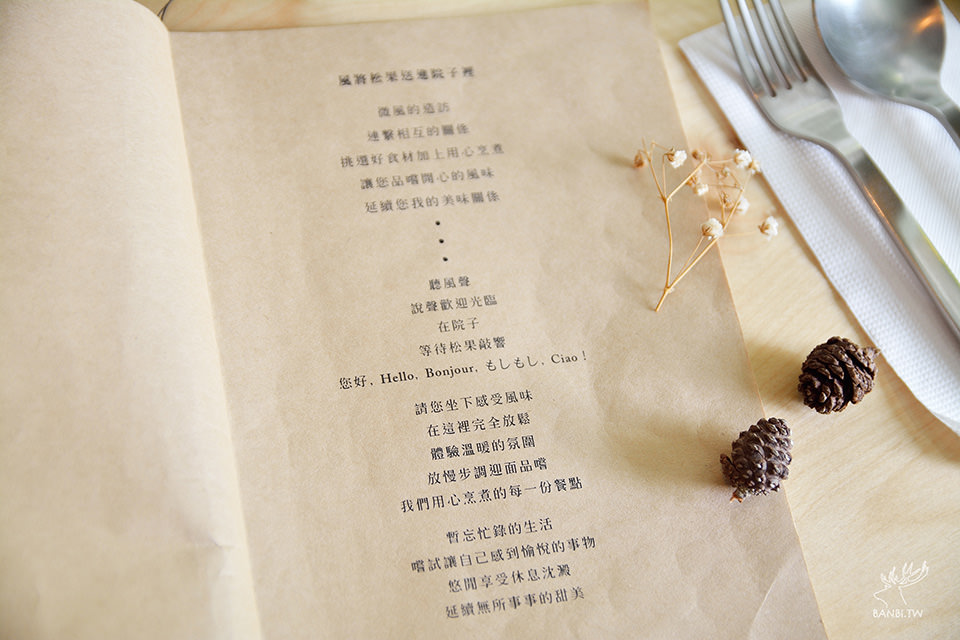 風將松果送進院子裡
微風的造訪
連繫相互的關係
挑選好食材加上用心烹煮
讓您品嚐開心的風味
延續您我的美味關係
•
•
•
聽風聲
說聲歡迎光臨
在院子
等待松果敲響
您好, Hello, Bonjour, もしもし, Ciao！
請您坐下感受風味
在這裡完全放鬆
體驗溫暖的氛圍
放慢步調迎面品嚐
我們用心烹煮的每一份餐點
暫忘忙錄的生活
嚐試讓自己感到愉悅的事物
悠閒享受休息沈澱
延續無所事事的甜美
BANBI.TW